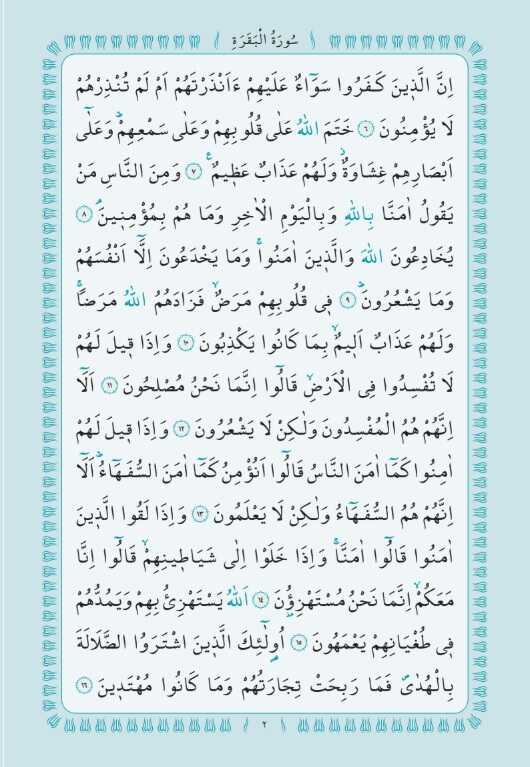 سُورَةُ الْبَقَرَةِ
اِنَّ الَّذٖينَ كَفَرُوا سَوَٓاءٌ عَلَيْهِمْ ءَاَنْذَرْتَهُمْ اَمْ لَمْ تُنْذِرْهُمْ
لَا يُؤْمِنُونَ ﴿٦﴾ خَتَمَ اللهُ عَلٰى قُلُوبِهِمْ وَعَلٰى سَمْعِهِمْؕ وَعَلٰٓى
اَبْصَارِهِمْ غِشَاوَةٌؗ وَلَهُمْ عَذَابٌ عَظٖيمٌࣖ ﴿٧﴾ وَمِنَ النَّاسِ مَنْ
يَقُولُ اٰمَنَّا بِاللهِ وَبِالْيَوْمِ الْاٰخِرِ وَمَا هُمْ بِمُؤْمِنٖينَۘ ﴿٨﴾
يُخَادِعُونَ اللهَ وَالَّذٖينَ اٰمَنُواۚ وَمَا يَخْدَعُونَ اِلَّٓا اَنْفُسَهُمْ
وَمَا يَشْعُرُونَؕ ﴿٩﴾ فٖى قُلُوبِهِمْ مَرَضٌۙ فَزَادَهُمُ اللهُ مَرَضًاۚ
وَلَهُمْ عَذَابٌ اَلٖيمٌۙ بِمَا كَانُوا يَكْذِبُونَ ﴿١٠﴾ وَاِذَا قٖيلَ لَهُمْ
لَا تُفْسِدُوا فِى الْاَرْضِۙ قَالُٓوا اِنَّمَا نَحْنُ مُصْلِحُونَ ﴿١١﴾ اَلَٓا
اِنَّهُمْ هُمُ الْمُفْسِدُونَ وَلٰكِنْ لَا يَشْعُرُونَ ﴿١٢﴾ وَاِذَا قٖيلَ لَهُمْ
اٰمِنُوا كَمَٓا اٰمَنَ النَّاسُ قَالُٓوا اَنُؤْمِنُ كَمَٓا اٰمَنَ السُّفَهَٓاءُؕ اَلَٓا
اِنَّهُمْ هُمُ السُّفَهَٓاءُ وَلٰكِنْ لَا يَعْلَمُونَ ﴿١٣﴾ وَاِذَا لَقُوا الَّذٖينَ
اٰمَنُوا قَالُٓوا اٰمَنَّاۚ وَاِذَا خَلَوْا اِلٰى شَيَاطٖينِهِمْۙ قَالُٓوا اِنَّا
مَعَكُمْۙ اِنَّمَا نَحْنُ مُسْتَهْزِؤُ۫نَ ﴿١٤﴾ اَللهُ يَسْتَهْزِئُ بِهِمْ وَيَمُدُّهُمْ
فٖى طُغْيَانِهِمْ يَعْمَهُونَ ﴿١٥﴾ اُو۬لٰٓئِكَ الَّذٖينَ اشْتَرَوُا الضَّلَالَةَ
بِالْهُدٰىࣕ فَمَا رَبِحَتْ تِجَارَتُهُمْ وَمَا كَانُوا مُهْتَدٖينَ ﴿١٦﴾
٢